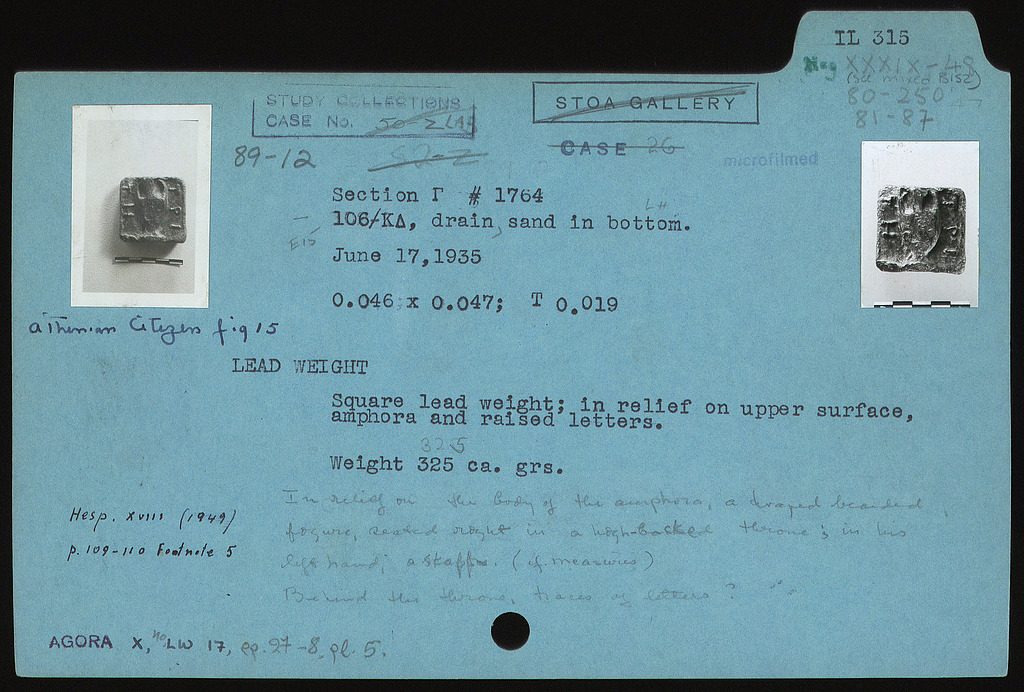 IL 315
Neg XXXIX-48
(see mixed Bis2)
80-250
81-87
STUDY COLLECTIONS
CASE No. 50-2
STOA GALLERY
89-12
CASE 26
microfilmed
Section Γ # 1764
LH
106/ΚΔ, drain, sand in bottom.
E15
June 17,1935
0.046 x 0.047; T 0.019
Athenian Citizens fig 15
LEAD WEIGHT
Square lead weight; in relief on upper surface,
amphora and raised letters.
325
Weight 325 ca. grs.
In relief on the body of the amphora, a draped bearded
figure, seated right in a high-backed throne; in his
left hand, a staff. (cf. measures)
Behind the throne, traces of letters?
Hesp. XVIII (1949)
p. 109-110 Footnote 5
AGORA X, no LW 17, pp. 27-8, pl. 5.